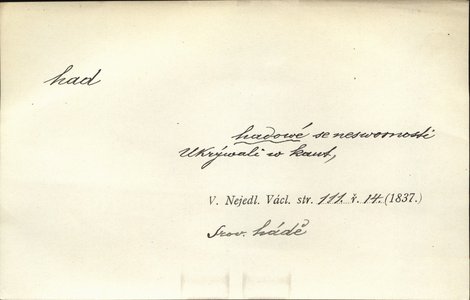 had
hadowé se neswornosti
Ukrýwali w kaut,
V. Nejedl. Václ. str. 111. ř. 14. (1837.)
Srov. hádě